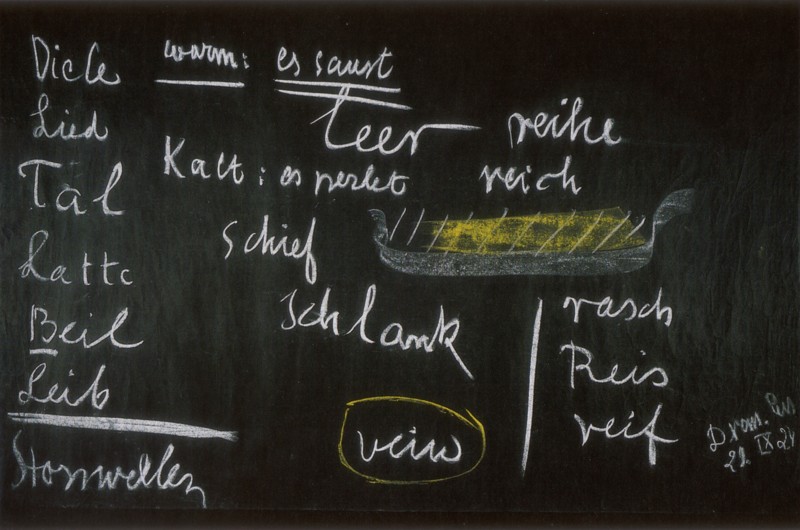 warm: es saust
Diele
Lied
Tal
Latte
Beil
Leib
Stosswellen
leer
reihe
Kalt: es perlet
reich
schief
schlank
rasch
Reis
reif
Dram.
21. IX 24